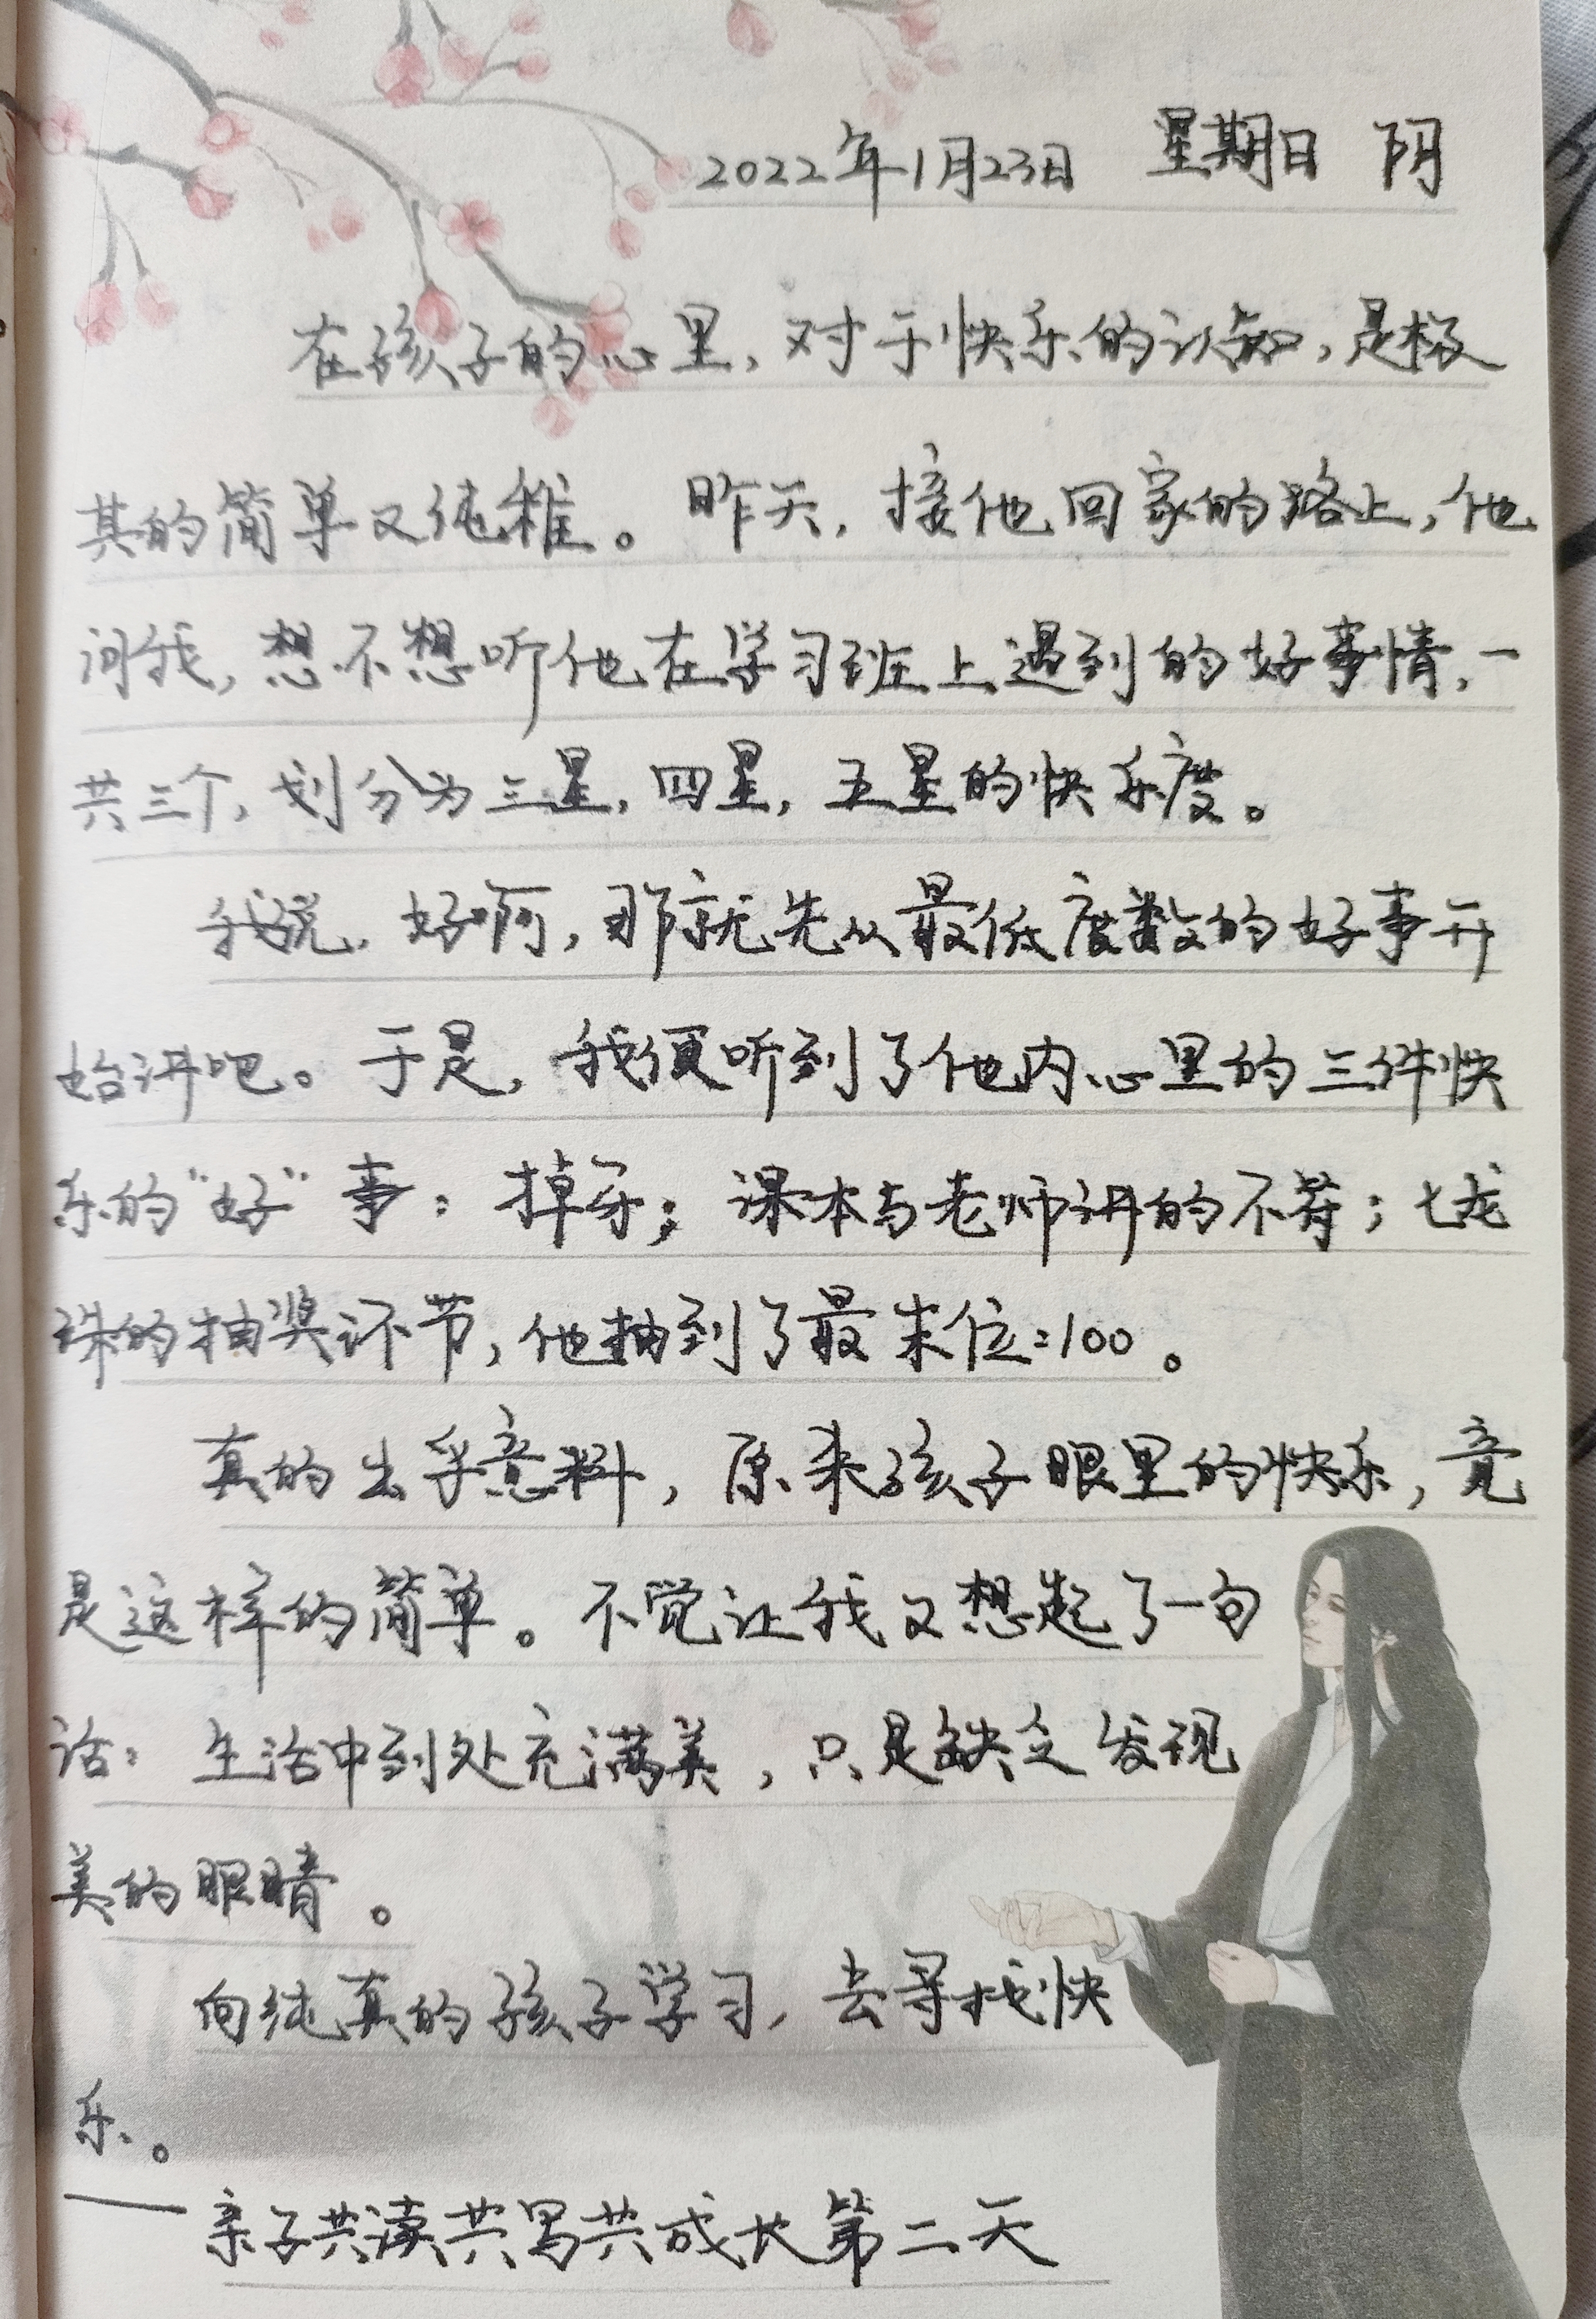 2022年1月23日 星期日 阴
在孩子的心里，对于快乐的认知，是极
其的简单又纯稚。昨天，接他回家的路上，他
问我，想不想听他在学习班上遇到的好事情，一
共三个，划分为三星，四星，五星的快乐度。
我说，好啊，那就先从最低度数的好事开
始讲吧。于是，我便听到了他内心里的三件快
乐的“好”事：掉牙；课本与老师讲的不符；七龙
珠的抽奖环节，他抽到了最末位：100。
真的出乎意料，原来孩子眼里的快乐，竟
是这样的简单。不觉让我又想起了一句
话：生活中到处充满美，只是缺乏发现
美的眼睛。
向纯真的孩子学习，去寻找快
乐。
——亲子共读共写共成长第二天